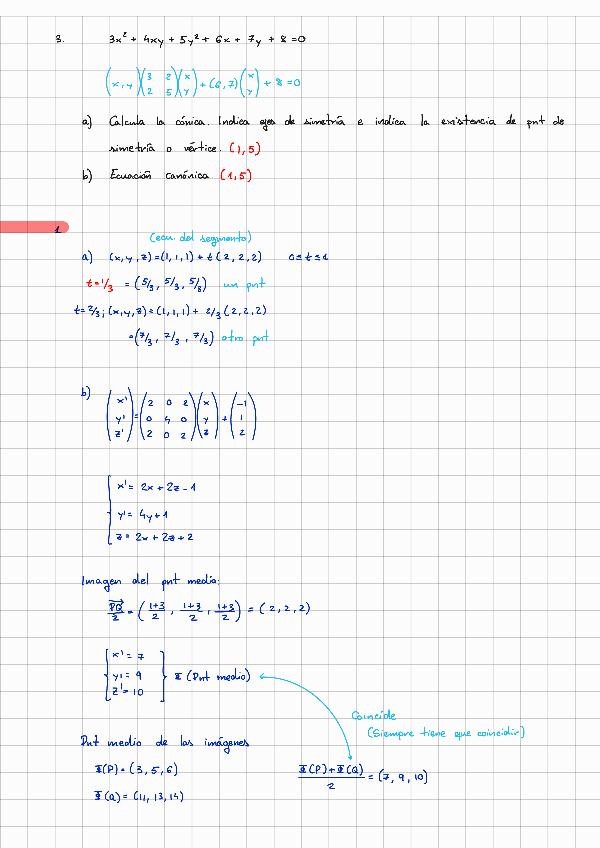 3. 3x² + 4xy + 5y² + 6x + 7y + 8 = 0
(x, y) (3 2 / 2 5) (x / y) + (6, 7) (x / y) + 8 = 0
a) Calcula la cónica. Indica ejes de simetría e indica la existencia de pnt de
simetría o vértice. (1,5)
b) Ecuación canónica (1,5)
1
(ecu. del segmento)
a) (x, y, z) = (1, 1, 1) + t (2, 2, 2) 0 ≤ t ≤ 1
t = 1/3 = (5/3, 5/3, 5/3) un pnt
t = 2/3; (x, y, z) = (1, 1, 1) + 2/3 (2, 2, 2)
= (7/3, 7/3, 7/3) otro pnt
b) (x' / y' / z') = (2 0 2 / 0 4 0 / 2 0 2) (x / y / z) + (-1 / 1 / 2)
x' = 2x + 2z - 1
y' = 4y + 1
z = 2x + 2z + 2
Imagen del pnt medio:
PQ/2 = (1+3/2, 1+3/2, 1+3/2) = (2, 2, 2)
x' = 7
y' = 9 Φ (Pnt medio)
z' = 10
Coincide
(Siempre tiene que coincidir)
Pnt medio de las imágenes
Φ(P) = (3, 5, 6) Φ(P) + Φ(Q) / 2 = (7, 9, 10)
Φ(Q) = (11, 13, 14)